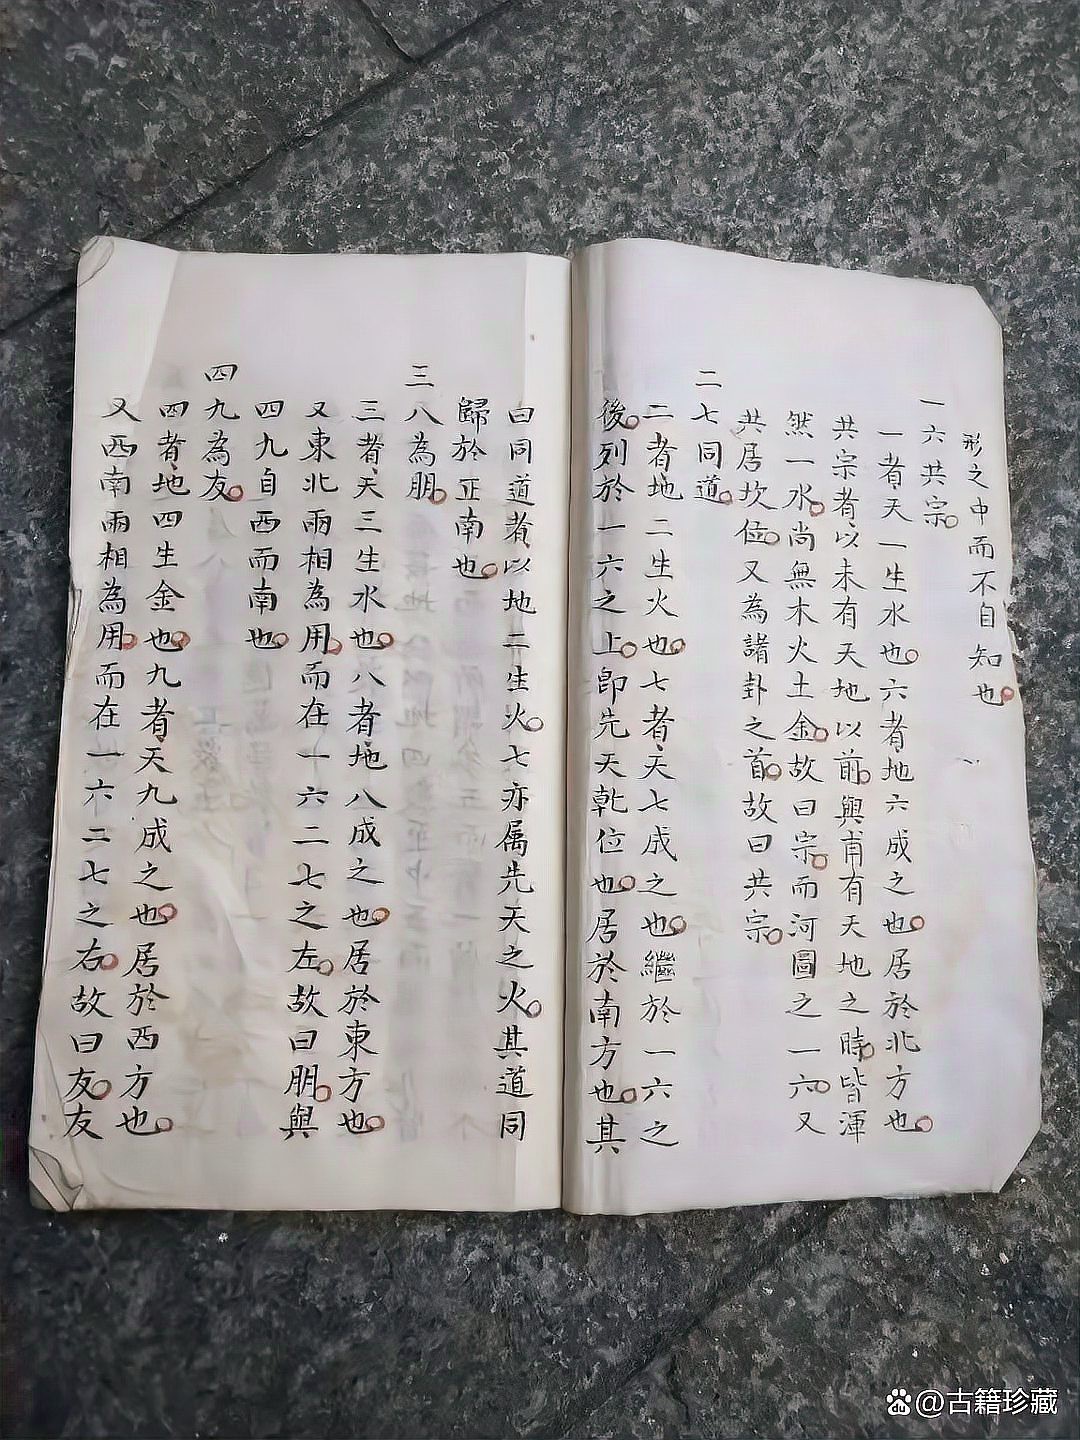 形之中而不自知也
一六共宗
一者天一生水也六者地六成之也居於北方也
共宗者以未有天地以前與甫有天地之時皆渾
然一水尚無木火土金故曰宗而河圖之一六又
共居坎位又為諸卦之首故曰共宗
二七同道
二者地二生火也七者天七成之也繼於一六之
後列於一六之上卽先天乾位也居於南方也其
曰同道者以地二生火七亦属先天之火其道同
歸於正南也
三八為朋
三者天三生水也八者地八成之也居於東方也
又東北兩相為用而在一六二七之左故曰朋與
四九自西而南也
四九為友
四者地四生金也九者天九成之也居於西方也
又西南兩相為用而在一六二七之右故曰友友
@古籍珍藏